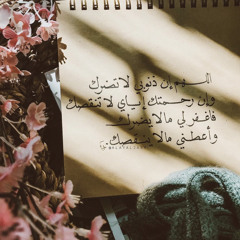 اللهم إن ذنوبي لا تضرك
وإن رحمتك إياي لا تنقصك
فاغفر لي مالا يضرك
وأعطني مالا ينقصك